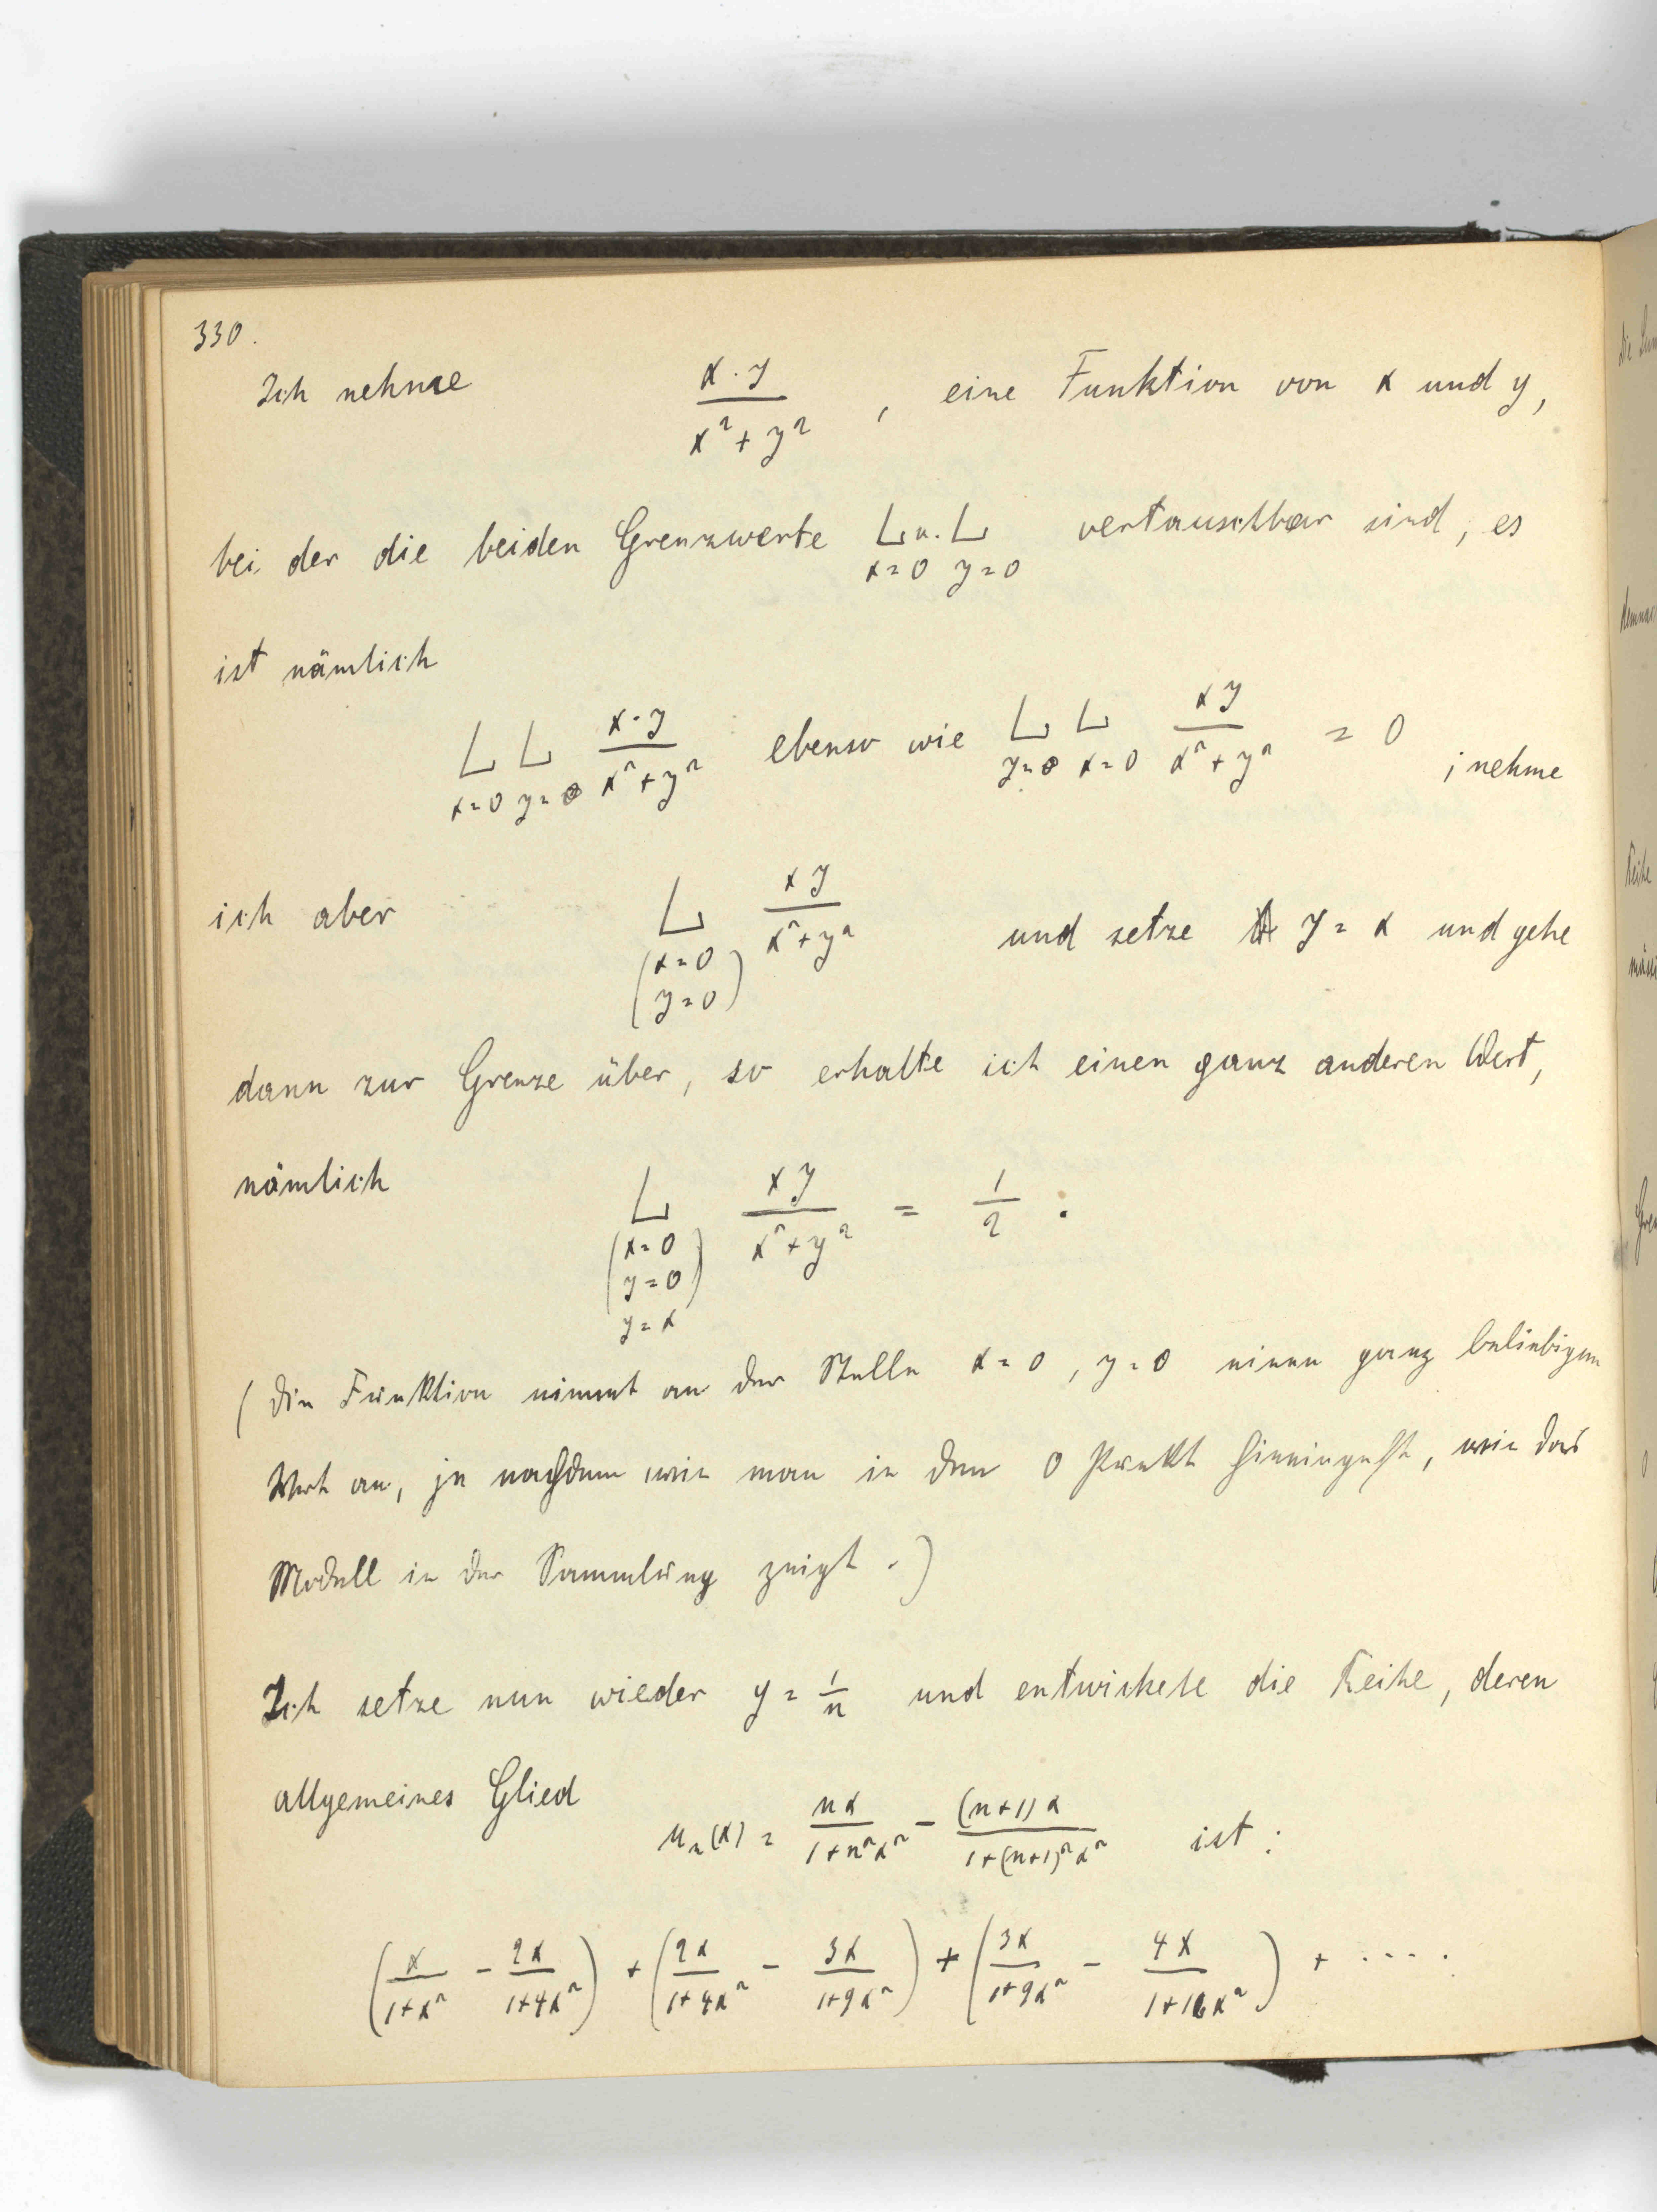 330.
Ich nehme $\frac{x \cdot y}{x^2 + y^2}$, eine Funktion von x und y,
bei der die beiden Grenzwerte $\underset{x=0}{L}$ u. $\underset{y=0}{L}$ vertauschbar sind, es
ist nämlich
$\underset{x=0}{L} \underset{y=0}{L} \frac{x \cdot y}{x^2 + y^2}$ ebenso wie $\underset{y=0}{L} \underset{x=0}{L} \frac{xy}{x^2 + y^2} = 0$ ; nehme
ich aber $\underset{\binom{x=0}{y=0}}{L} \frac{xy}{x^2 + y^2}$ und setze y = x und gehe
dann zur Grenze über, so erhalte ich einen ganz anderen Wert,
nämlich $\underset{\substack{\binom{x=0}{y=0} \\ y=x}}{L} \frac{xy}{x^2 + y^2} = \frac{1}{2}$.
(Die Funktion nimmt an der Stelle x = 0, y = 0 einen ganz beliebigen
Wert an, je nachdem wie man in den 0 Punkt hineingeht, wie das
Modell in der Sammlung zeigt.)
Ich setze nun wieder $y = \frac{1}{n}$ und entwickele die Reihe, deren
allgemeines Glied
$u_n(x) = \frac{nx}{1+n^2x^2} - \frac{(n+1)x}{1+(n+1)^2x^2}$ ist:
$\left(\frac{x}{1+x^2} - \frac{2x}{1+4x^2}\right) + \left(\frac{2x}{1+4x^2} - \frac{3x}{1+9x^2}\right) + \left(\frac{3x}{1+9x^2} - \frac{4x}{1+16x^2}\right) + \cdots\cdot$